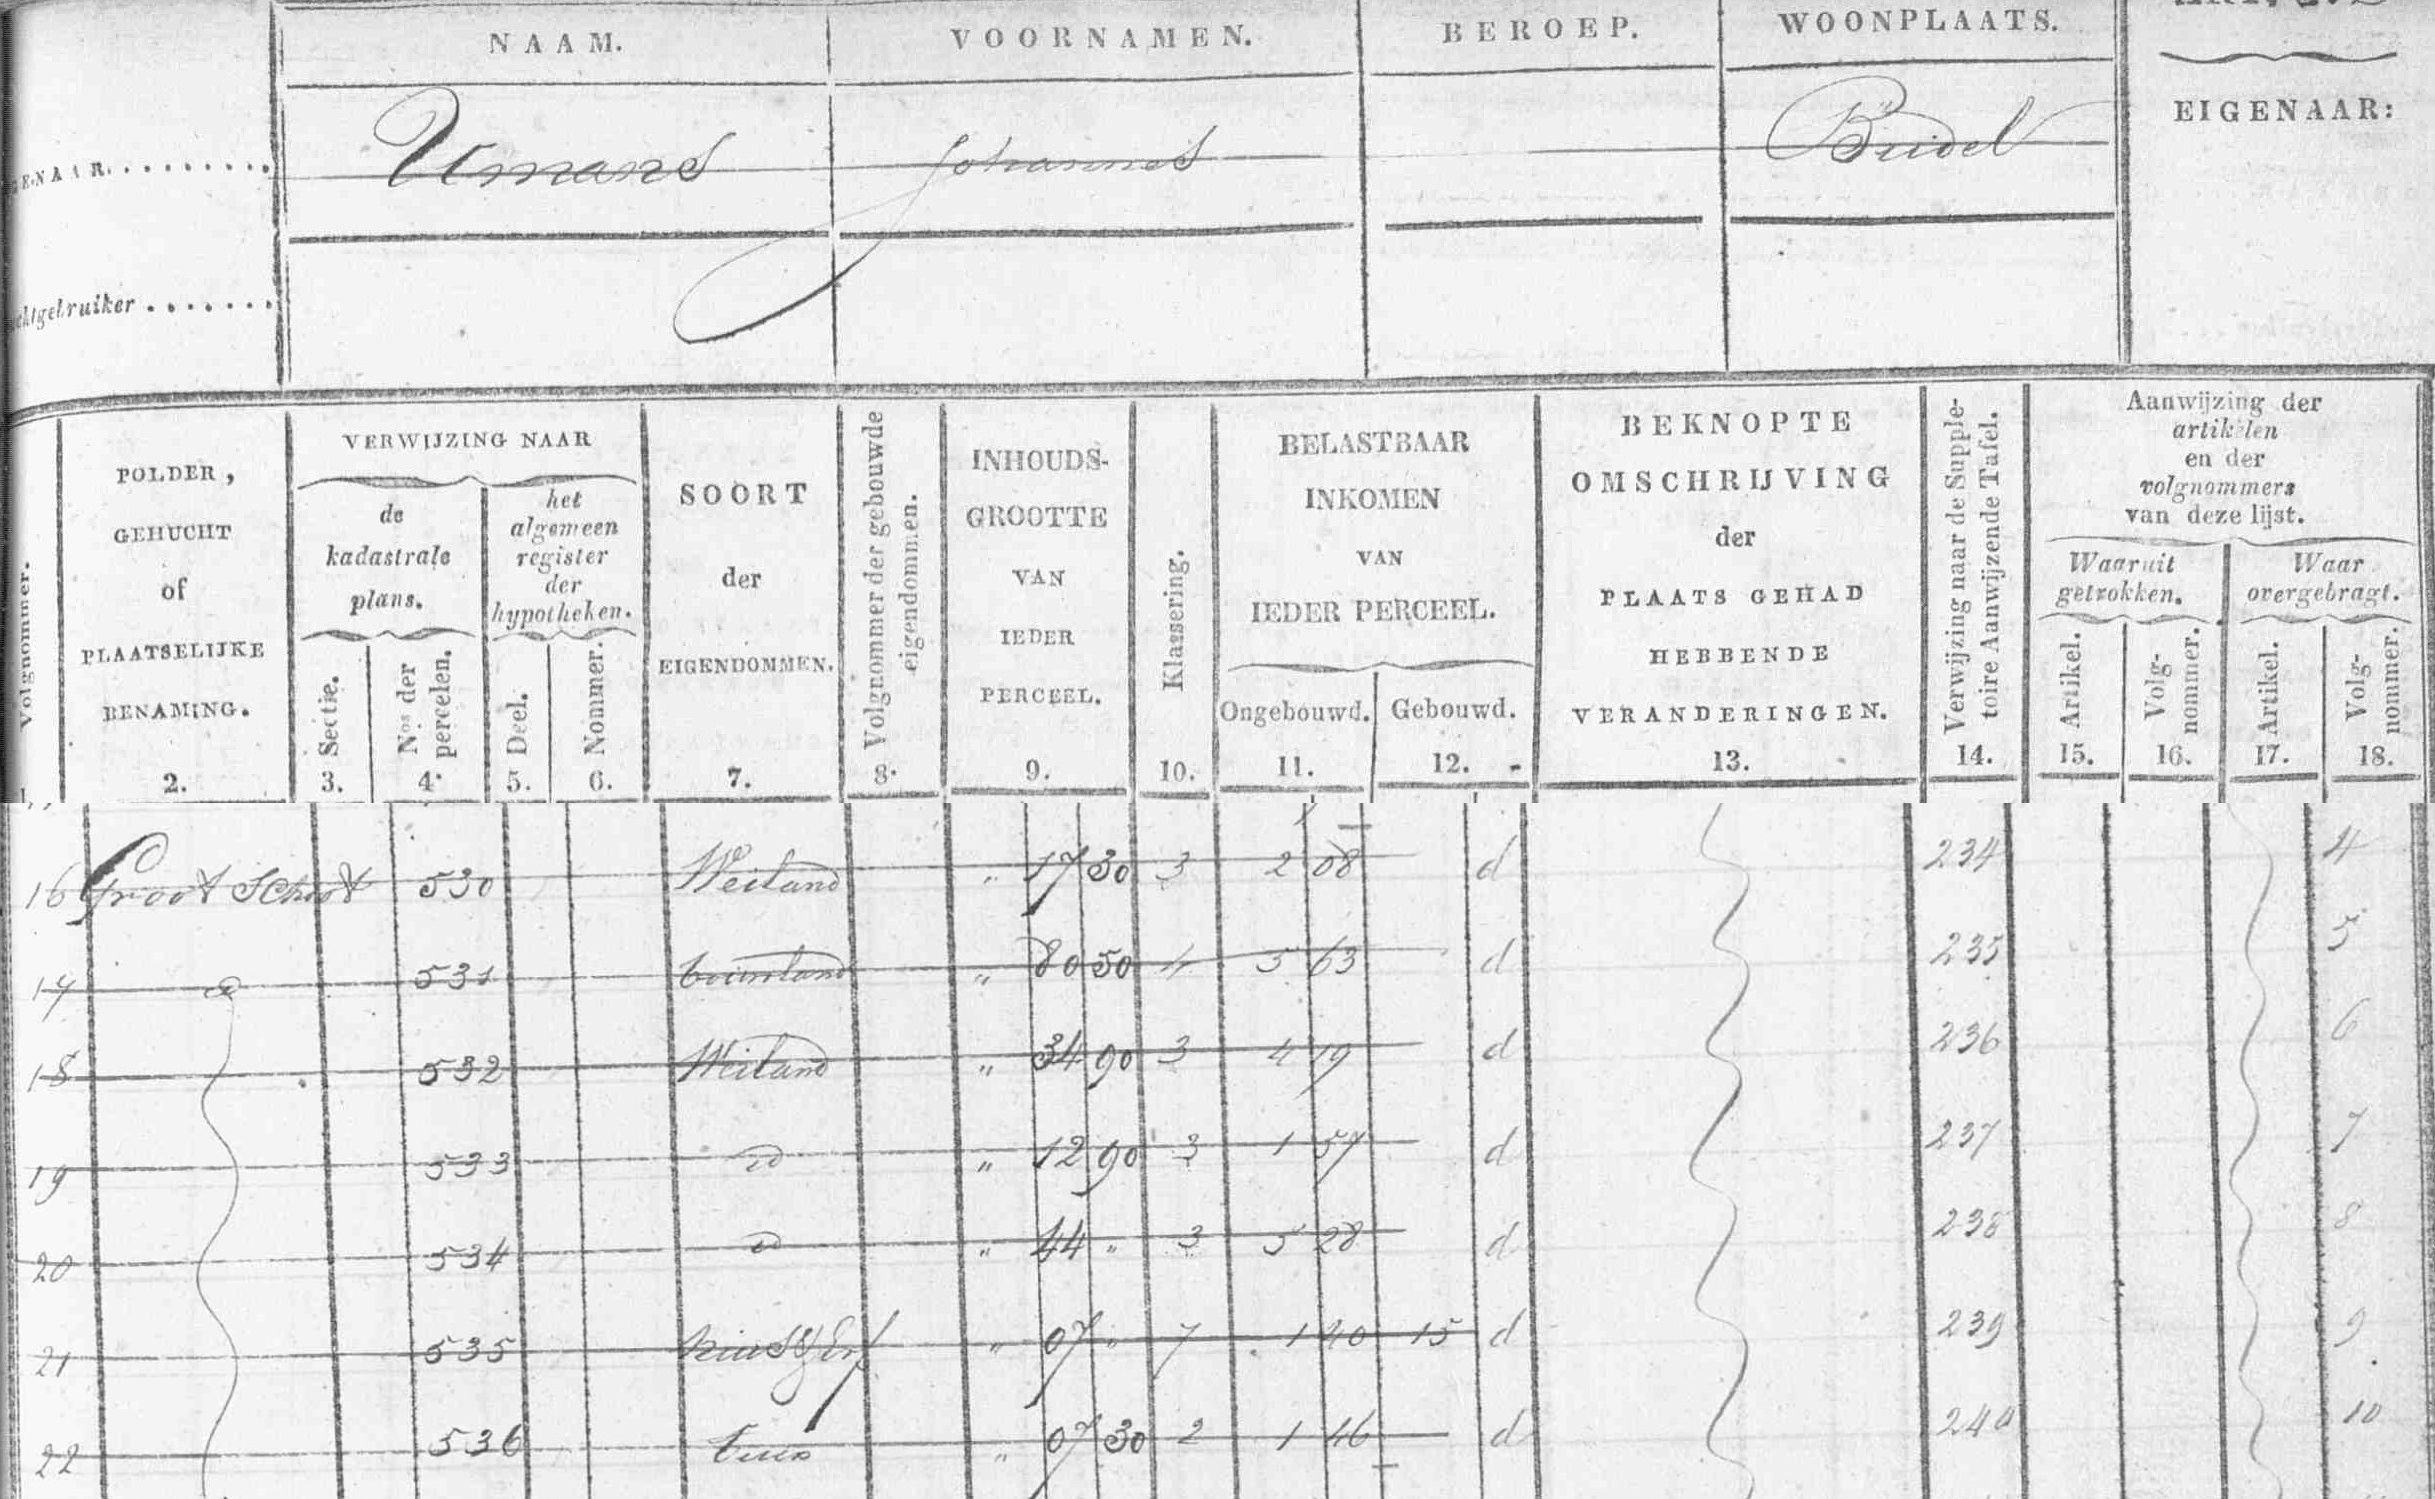 NAAM. VOORNAMEN. BEROEP. WOONPLAATS.
EIGENAAR:
Umans Johannes Budel
POLDER, GEHUCHT of PLAATSELIJKE BENAMING. 2.
VERWIJZING NAAR
de kadastrale plans.
Sectie. 3.
Nos der percelen. 4.
het algemeen register der hypotheken.
Deel. 5.
Nommer. 6.
SOORT der EIGENDOMMEN. 7.
Volgnommer der gebouwde eigendommen. 8.
INHOUDS-GROOTTE VAN IEDER PERCEEL. 9.
Klassering. 10.
BELASTBAAR INKOMEN VAN IEDER PERCEEL.
Ongebouwd. 11.
Gebouwd. 12.
BEKNOPTE OMSCHRIJVING der PLAATS GEHAD HEBBENDE VERANDERINGEN. 13.
Verwijzing naar de Supple-toire Aanwijzende Tafel. 14.
Aanwijzing der artikelen en der volgnommers van deze lijst.
Waaruit getrokken.
Artikel. 15.
Volg-nommer. 16.
Waar overgebragt.
Artikel. 17.
Volg-nommer. 18.
Volgnommer.
16 Groot Schoot 530 Weiland " 17 30 3 2 08 d 234 4
17 d 531 bouwland " 80 50 4 5 63 d 235 5
18 532 Weiland " 34 90 3 4 19 d 236 6
19 533 d 12 90 3 1 57 d 237 7
20 534 d " 44 " 3 5 28 d 238 8
21 535 huis & Erf " 07 " 7 1 40 15 d 239 9
22 536 tuin " 07 30 2 1 46 d 240 10